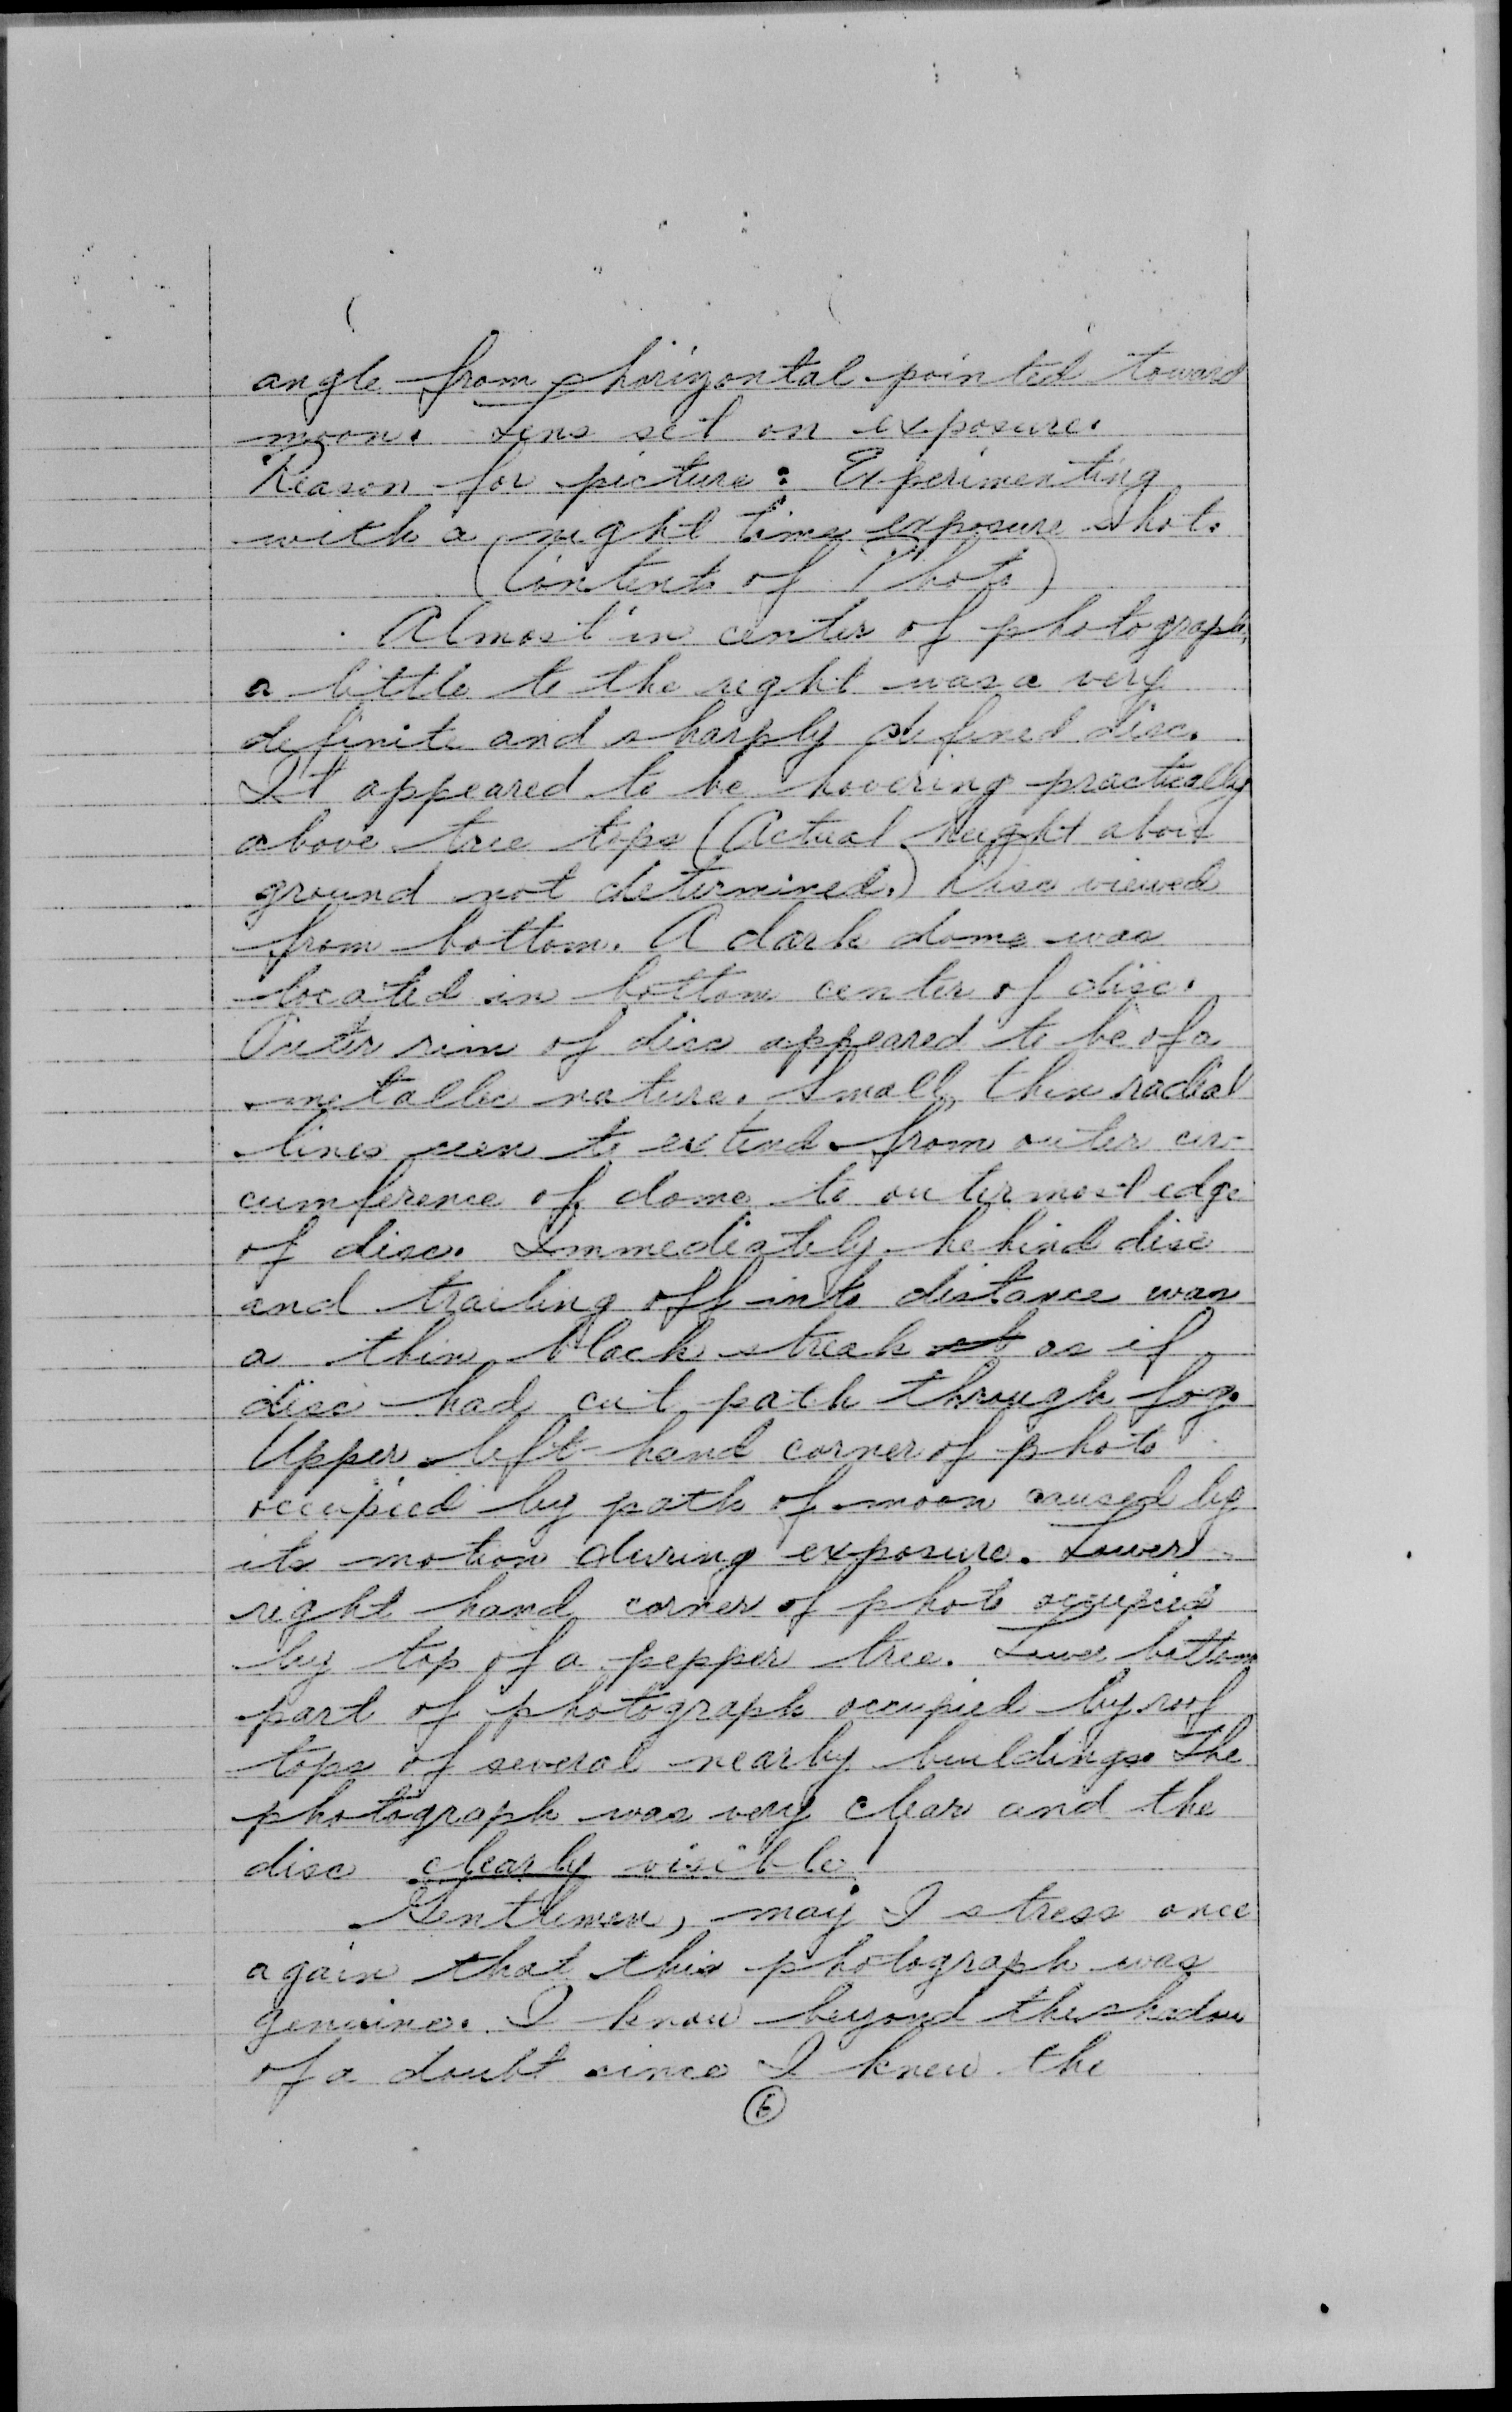 angle from horizontal pointed toward
moon. Lens set on exposure.
Reason for picture: Experimenting
with a night time exposure shot.
(Contents of Photo)
Almost in center of photograph,
a little to the right was a very
definite and sharply defined disc.
It appeared to be hovering practically
above tree tops (Actual height above
ground not determined.) Disc viewed
from bottom. A dark dome was
located in bottom center of disc.
Outer rim of disc appeared to be of a
metallic nature. Small, thin radial
lines seen to extend from outer cir-
cumference of dome to outermost edge
of disc. Immediately behind disc
and trailing off into distance was
a thin black streak as if
disc had cut path through fog.
Upper left-hand corner of photo
occupied by path of moon caused by
its motion during exposure. Lower
right hand corner of photo occupied
by top of a pepper tree. Lower bottom
part of photograph occupied by roof
tops of several nearby buildings. The
photograph was very clear and the
disc clearly visible!
Gentlemen, may I stress once
again that this photograph was
genuine. I know beyond the shadow
of a doubt since I knew the
6